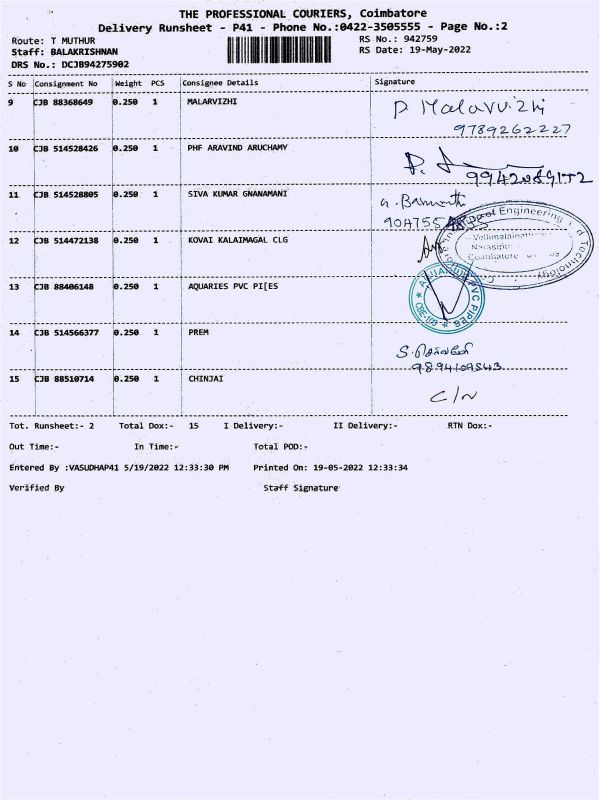 THE PROFESSIONAL COURIERS, Coimbatore
Delivery Runsheet - P41 - Phone No.:0422-3505555 - Page No.:2
Route: T MUTHUR RS No.: 942759
Staff: BALAKRISHNAN RS Date: 19-May-2022
DRS No.: DCJB94275902
S No Consignment No Weight PCS Consignee Details Signature
9 CJB 88368649 0.250 1 MALARVIZHI P. Malarvizhi
9789262227
10 CJB 514528426 0.250 1 PHF ARAVIND ARUCHAMY
11 CJB 514528805 0.250 1 SIVA KUMAR GNANAMANI
of Engineering
Technology
12 CJB 514472138 0.250 1 KOVAI KALAIMAGAL CLG
Coimbatore
13 CJB 88406148 0.250 1 AQUARIES PVC PI[ES
PVC PIPES
CBE-109
14 CJB 514566377 0.250 1 PREM
9894109843
15 CJB 88510714 0.250 1 CHINJAI C/N
Tot. Runsheet:- 2 Total Dox:- 15 I Delivery:- II Delivery:- RTN Dox:-
Out Time:- In Time:- Total POD:-
Entered By :VASUDHAP41 5/19/2022 12:33:30 PM Printed On: 19-05-2022 12:33:34
Verified By Staff Signature